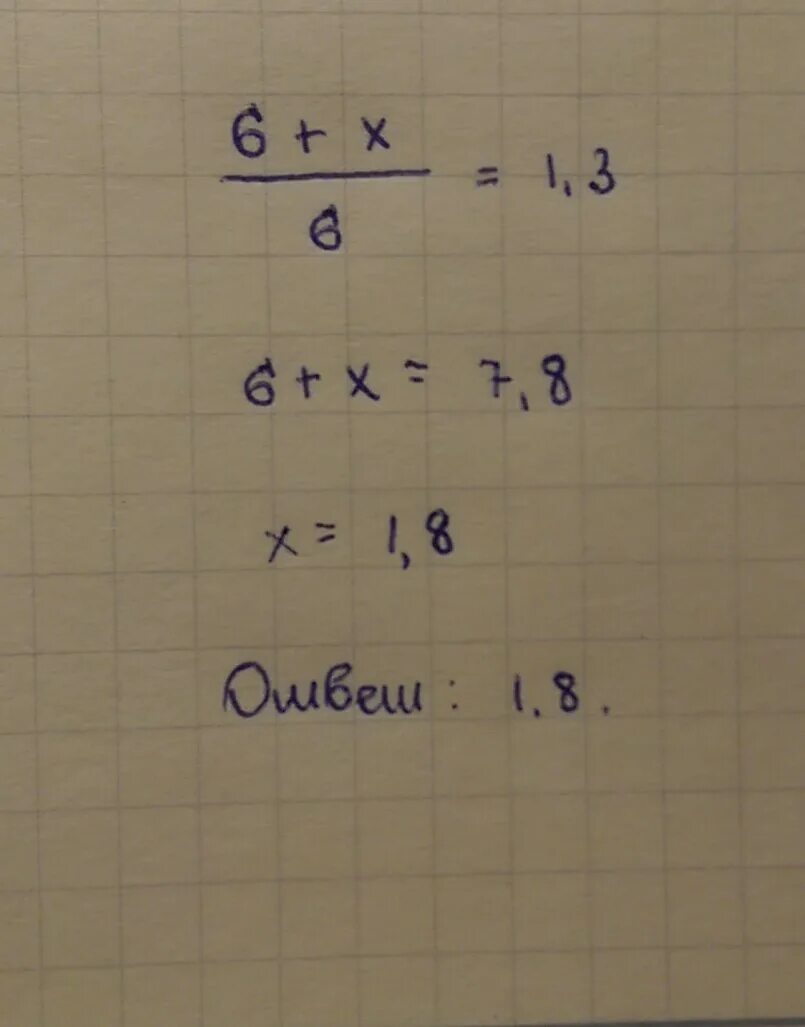 6 + x
/ 6 = 1,3
6 + x = 7,8
x = 1,8
Ответ: 1.8.